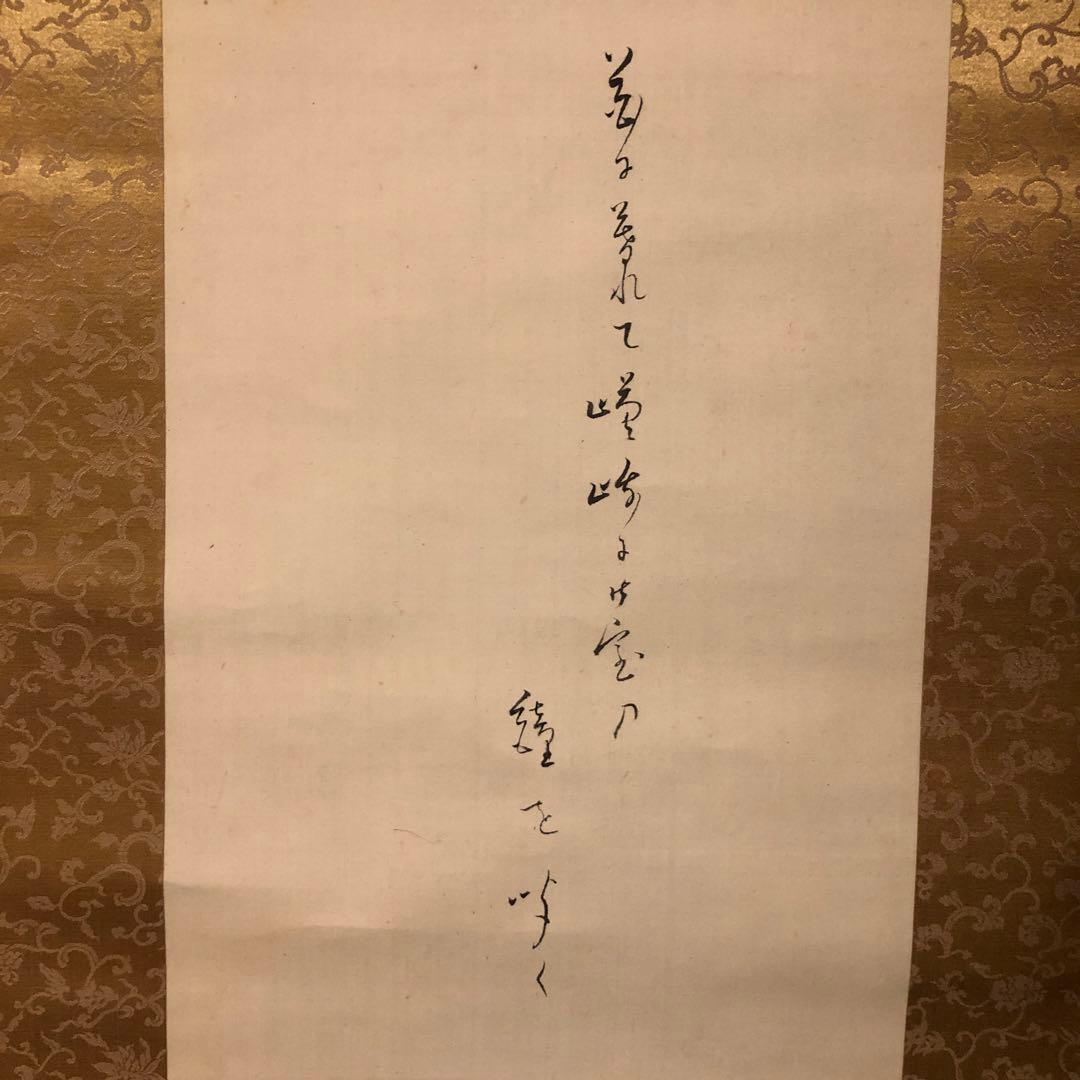 花に暮れて嵯峨に御室の
鐘を聞く